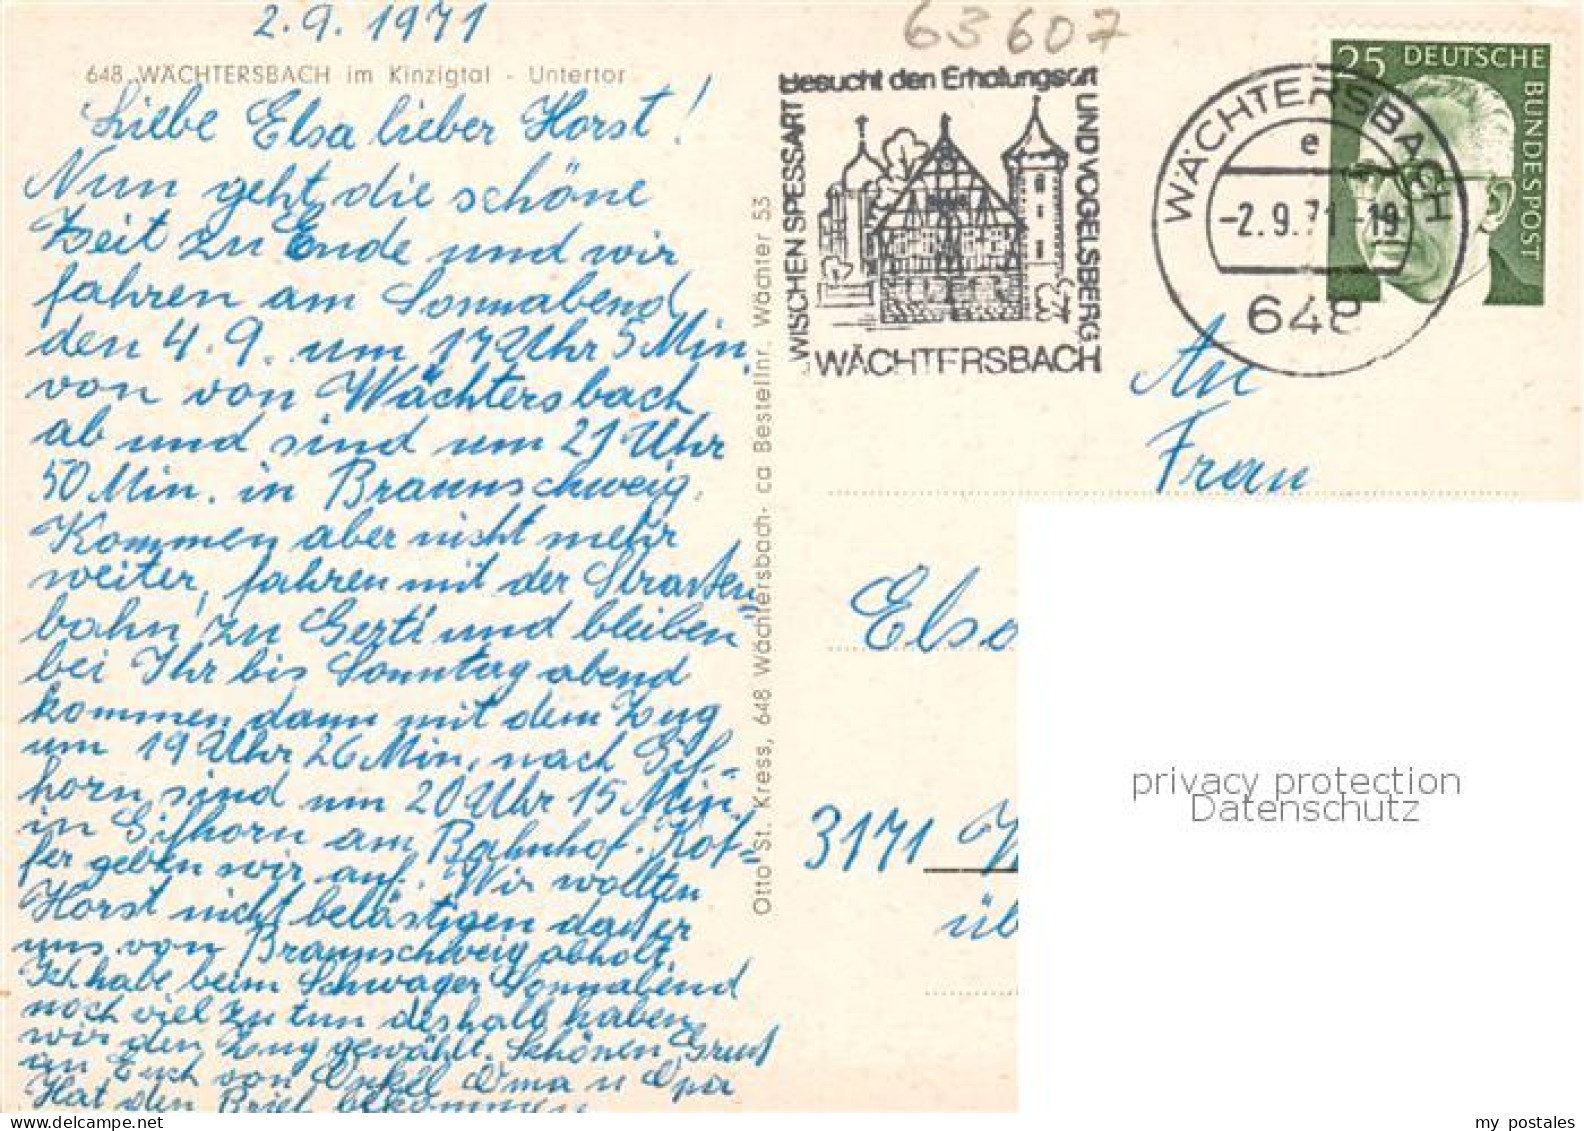 2.9.1971
63607
648 WÄCHTERSBACH im Kinzigtal - Untertor
Liebe Elsa lieber Horst!
Nun geht die schöne
Zeit zu Ende und wir
fahren am Sonnabend
den 4.9. um 17 Uhr 5 Min.
von von Wächtersbach
ab und sind um 21 Uhr
50 Min. in Braunschweig.
Kommen aber nicht mehr
weiter, fahren mit der Straßen=
bahn zu Gerti und bleiben
bei Ihr bis Sonntag abend
kommen dann mit dem Zug
um 19 Uhr 26 Min. nach Gif=
horn sind um 20 Uhr 15 Min.
in Gifhorn am Bahnhof. Kof=
fer geben wir auf. Wir wollten
Horst nicht belästigen das er
uns von Braunschweig abholt.
Ich habe beim Schwager Sonnabend
noch viel zu tun deshalb haben
wir den Zug gewählt. Schönen Gruß
an Euch von Onkel Oma u Opa
Hat den Brief bekommen
Otto St. Kress, 648 Wächtersbach- ca Bestellnr. Wächter 53
Besucht den Erholungsort
WISCHEN SPESSART
UND VOGELSBERG
WÄCHTERSBACH
WÄCHTERSBACH
e
-2.9.71-19
648
25 DEUTSCHE
BUNDESPOST
An
Frau
Elsa
3171 W
üb
privacy protection
Datenschutz
my postales